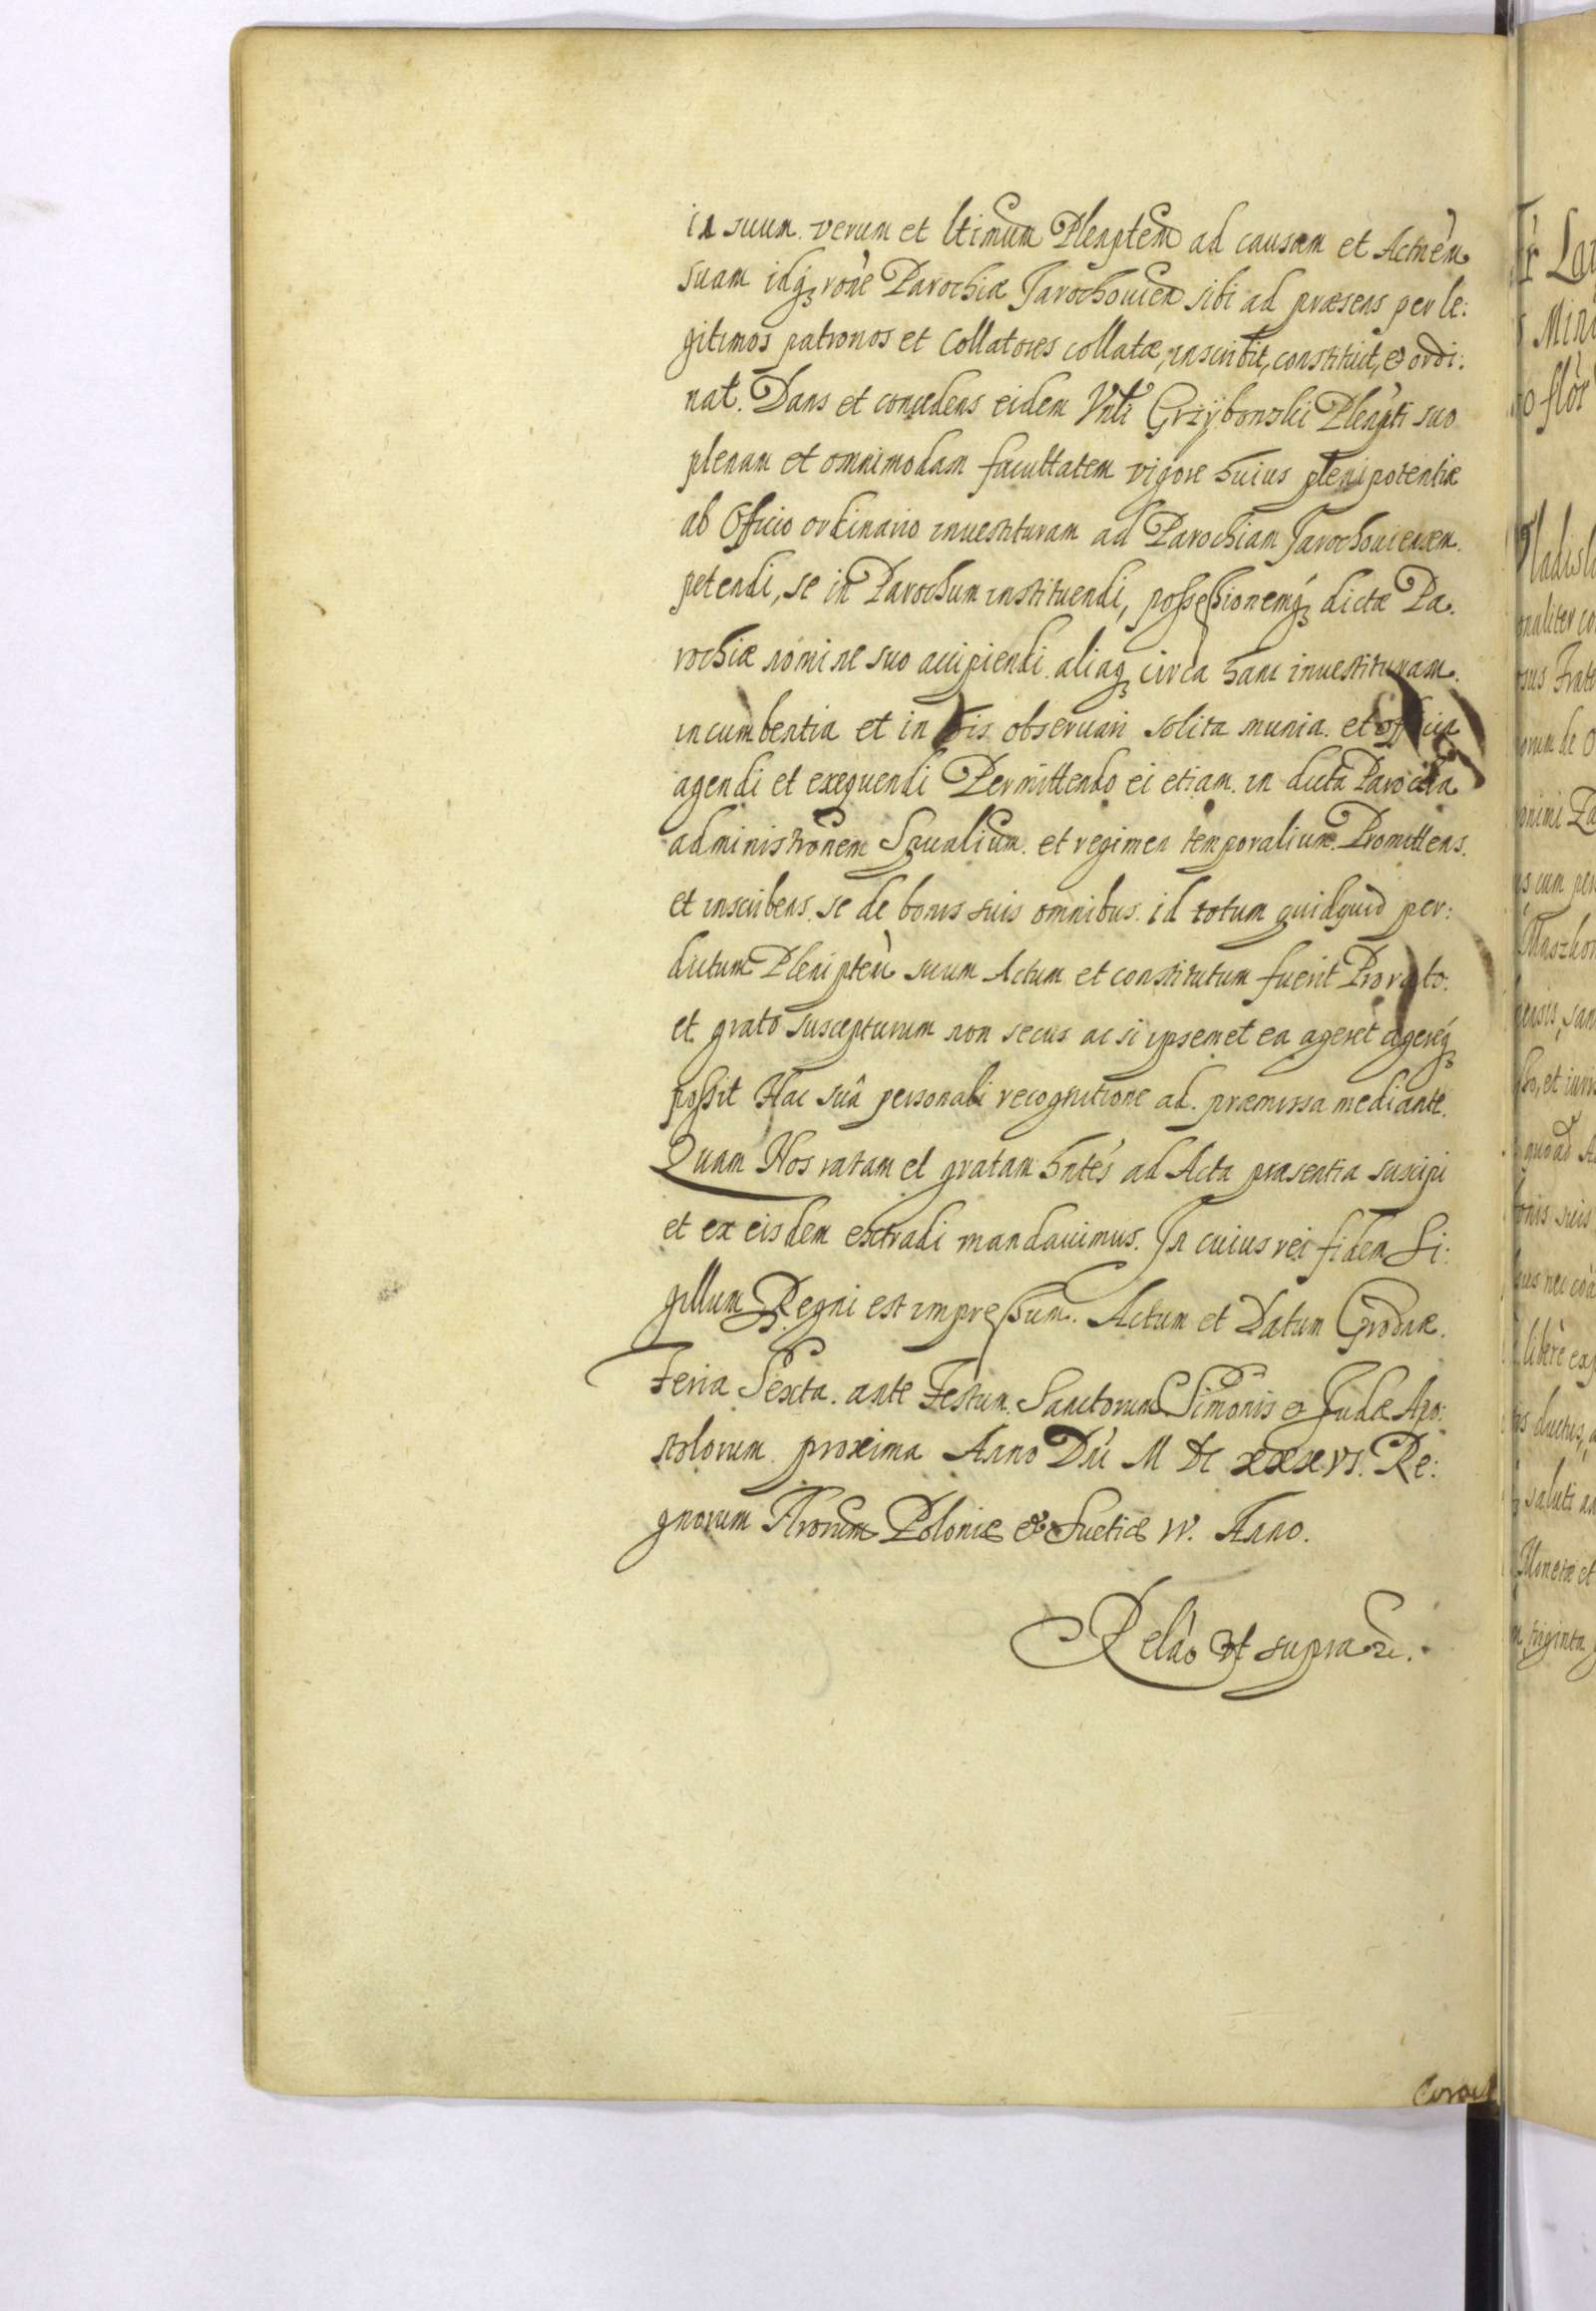 in suum verum et ltimum Plenptem ad causam et Actnem
suam idq rone Parochiæ Jarochouien sibi ad præsens per le:
gitimos patronos et Collatores collatæ, inscribit, constituit, et ordi:
nat. Dans et concedens eidem Vnli Grzÿbowski Plenpti suo
plenam et omnimodam facultatem vigore huius plenipotentiæ
ab Officio ordinario inuestituram ad Parochiam Jarochouiensem
petendi, se in Parochum instituendi, possessionemq dictæ Pa.
rochiæ nomine suo accipiendi aliaq circa hanc inuestituram
incumbentia et in his obseruari solita munia et officia
agendi et exequendi Permittendo ei etiam in dicta Parochia
administronem Spualium et regimen temporalium Promittens
et inscribens se de bonis suis omnibus id totum quidquid per:
dictum Plenipten suum Actum et constitutum fuerit Pro rato
et grato suscepturum non secus ac si ipsemet ea ageret agereq
possit Hac suâ personali recognitione ad præmissa mediante.
Quam Nos ratam et gratam hntes ad Acta præsentia suscipi
et ex eisdem extradi mandauimus. In cuius rei fidem Si:
gillum Regni est impressum. Actum et Datum Grodnæ
Feria Sexta ante Festum Sanctorum Simonis et Judæ Apo:
stolorum proxima Anno Dni M DC xxxvi. Re:
gnorum Nrorum Poloniæ et Suetiæ iv. Anno.
Relao vt supra